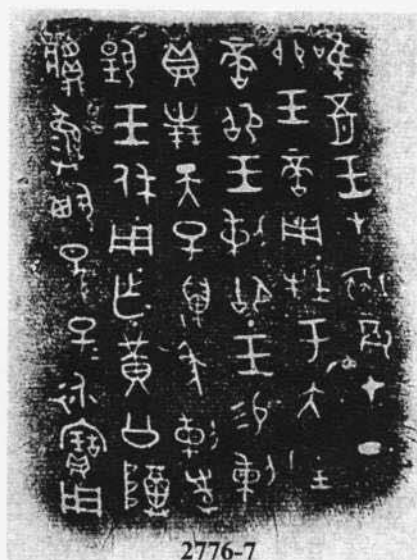 唯五月王才初辰才丁
卯王啻用牡于大室
啻卲王剌御王易剌
貝卅朋天子萬年剌對
揚王休用乍黃公尊
彝其孫子永寶用
2776-7